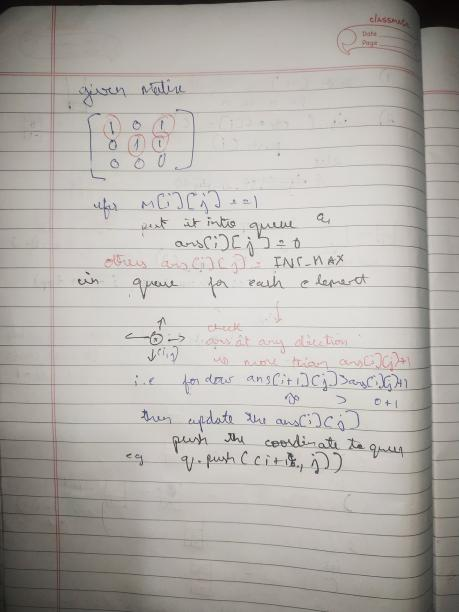 classmate
Date
Page
given Matrix
1 0 1
0 1 1
0 0 0
for M[i][j] == 1
put it into queue q,
ans[i][j] = 0
others ans[i][j] = INT_MAX
in queue for each element
check
(i,j)
ans at any direction
is more than ans[i][j]+1
i.e for down ans[i+1][j] > ans[i][j]+1
∞ > 0+1
then update the ans[i][j]
push the coordinate to queue
eg q.push((i+1, j))